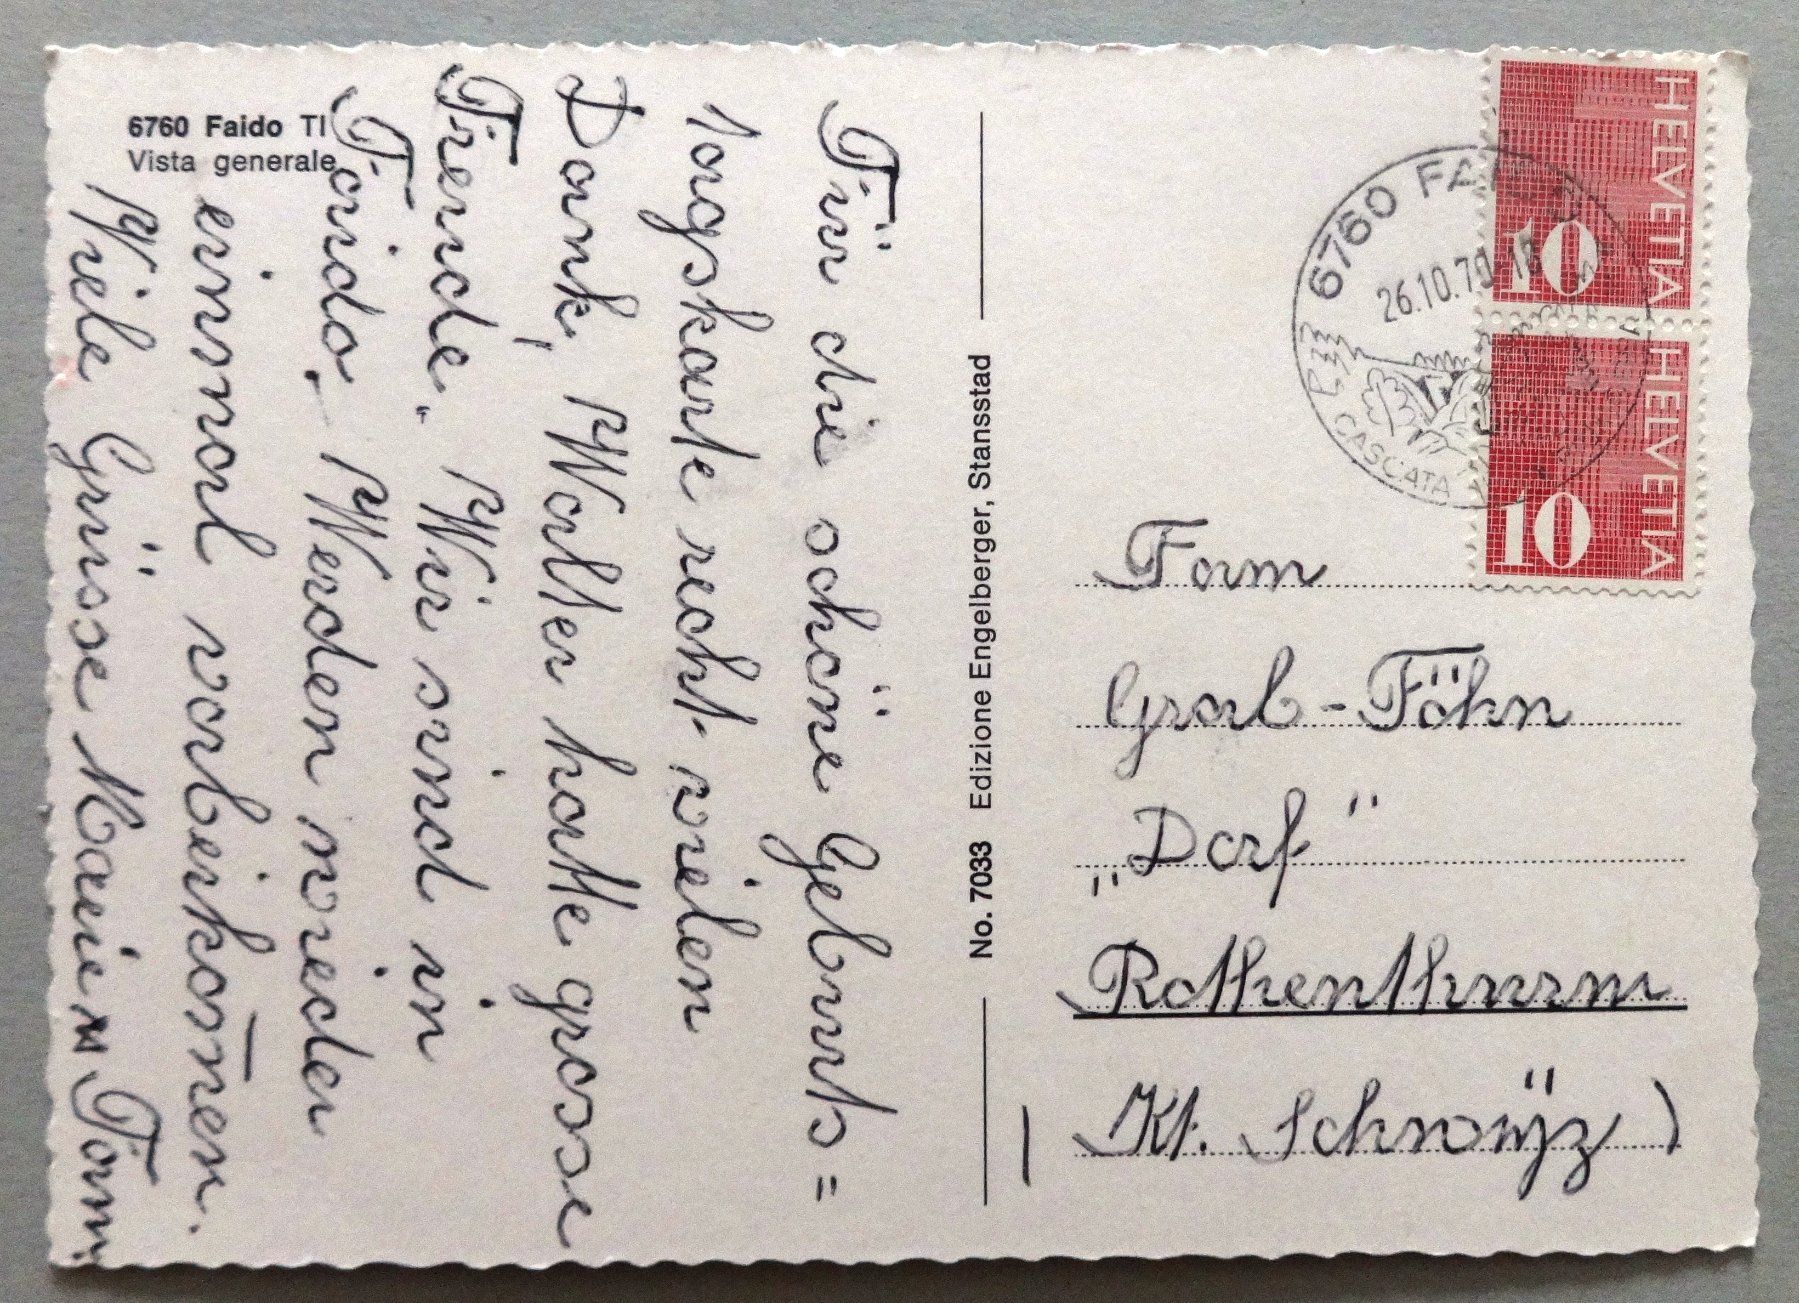 6760 Faido TI
Vista generale
Für die schöne Geburts=
tagskarte recht vielen
Dank, Walter hatte grosse
Freude. Wir sind in
Faido. Werden wieder
einmal vorbeikom̄en.
Viele Grüsse Marie u. Fam.
No. 7033 Edizione Engelberger, Stansstad
6760 FAIDO
26.10.70-18
CASCATA
HELVETIA
10
HELVETIA
10
Fam
Grab-Föhn
„Dorf"
Rothenthurm
(Kt. Schwÿz)